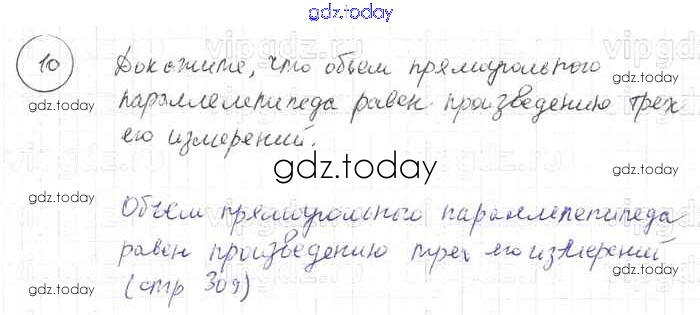 gdz.today
10 Докажите, что объем прямоугольного
параллелепипеда равен произведению трех
его измерений.
gdz.today
gdz.today
gdz.today
gdz.today
gdz.today
Объем прямоугольного параллелепипеда
равен произведению трех его измерений
(стр 309)
gdz.today
gdz.today